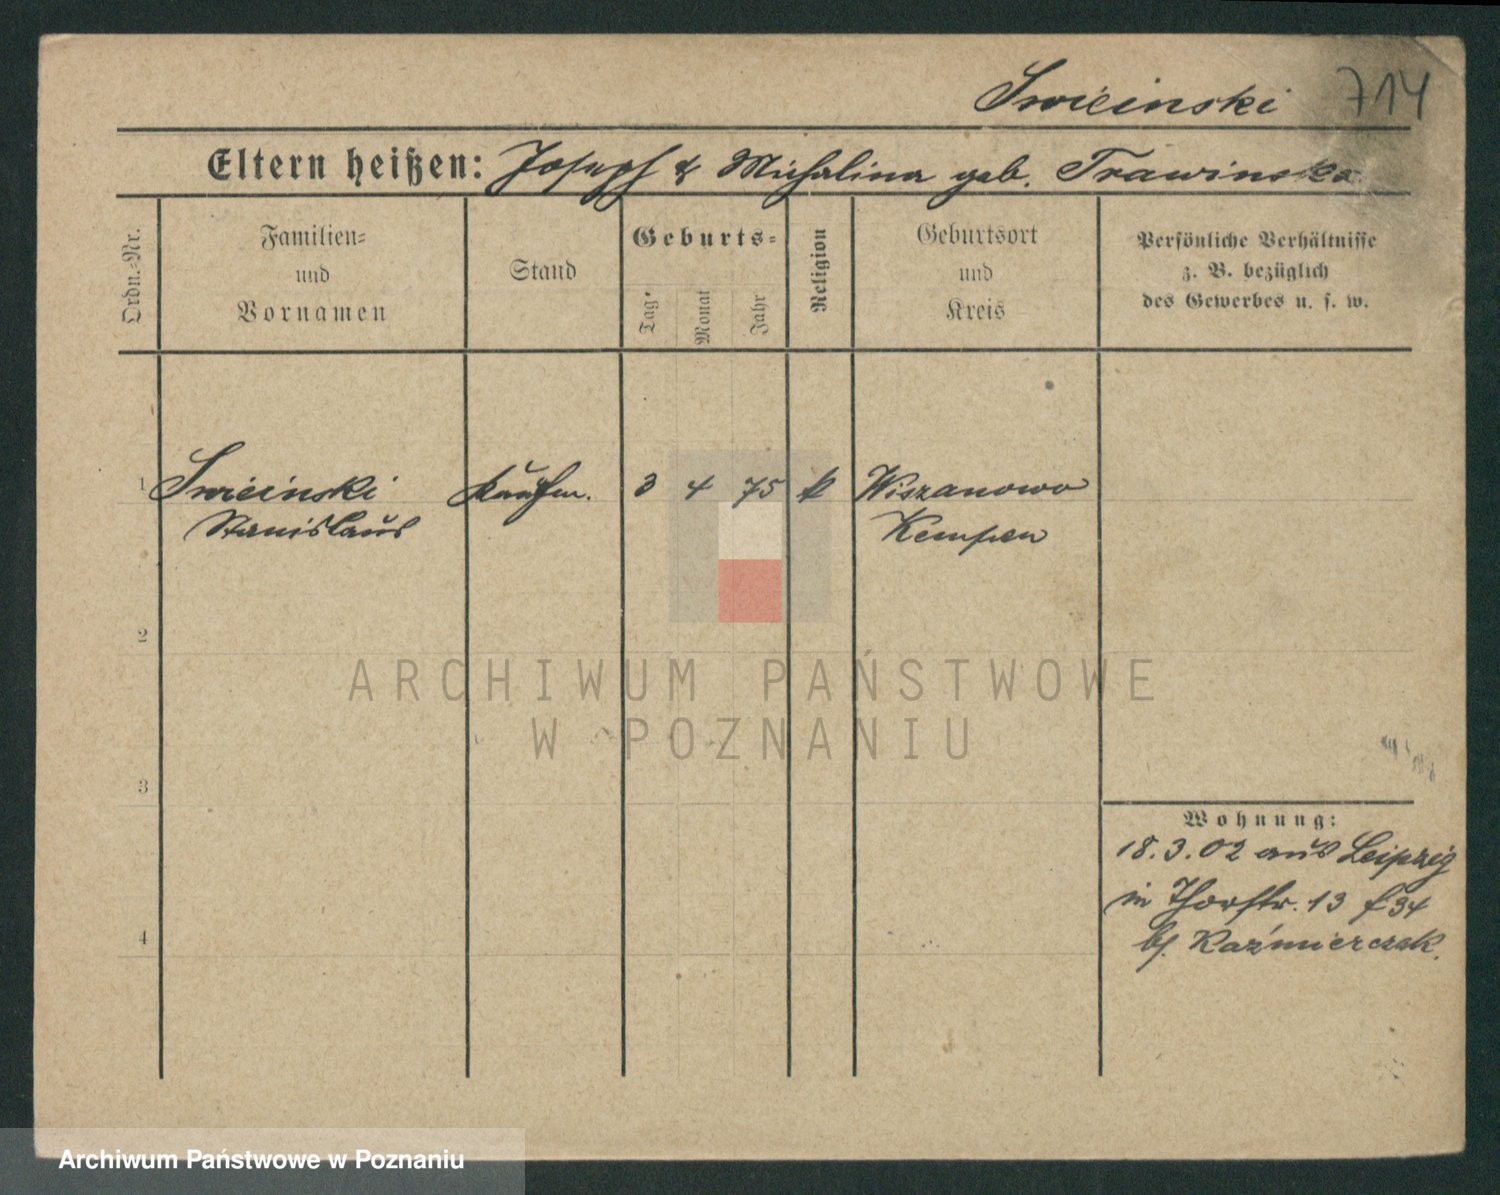 Swieinski 714
Eltern heißen: Joseph & Michalina geb. Trawinska
Ordn.=Nr.
Familien=
und
Vornamen
Stand
Geburts=
Tag
Monat
Jahr
Religion
Geburtsort
und
Kreis
Persönliche Verhältnisse
z. B. bezüglich
des Gewerbes u. s. w.
1 Swieinski Kaufm. 3 4 75 k Wiszanowo
Stanislaus Kempen
2
3
4
Wohnung:
18.3.02 aus Leipzig
in Thorstr. 13 f 34
bf. Kaźmierczak.
ARCHIWUM PAŃSTWOWE
W POZNANIU
Archiwum Państwowe w Poznaniu